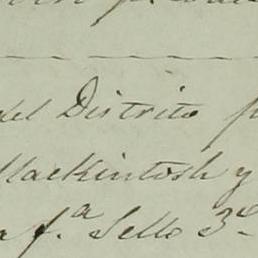 del Distrito p
Mackintosh y
a f.ª Sello 3º